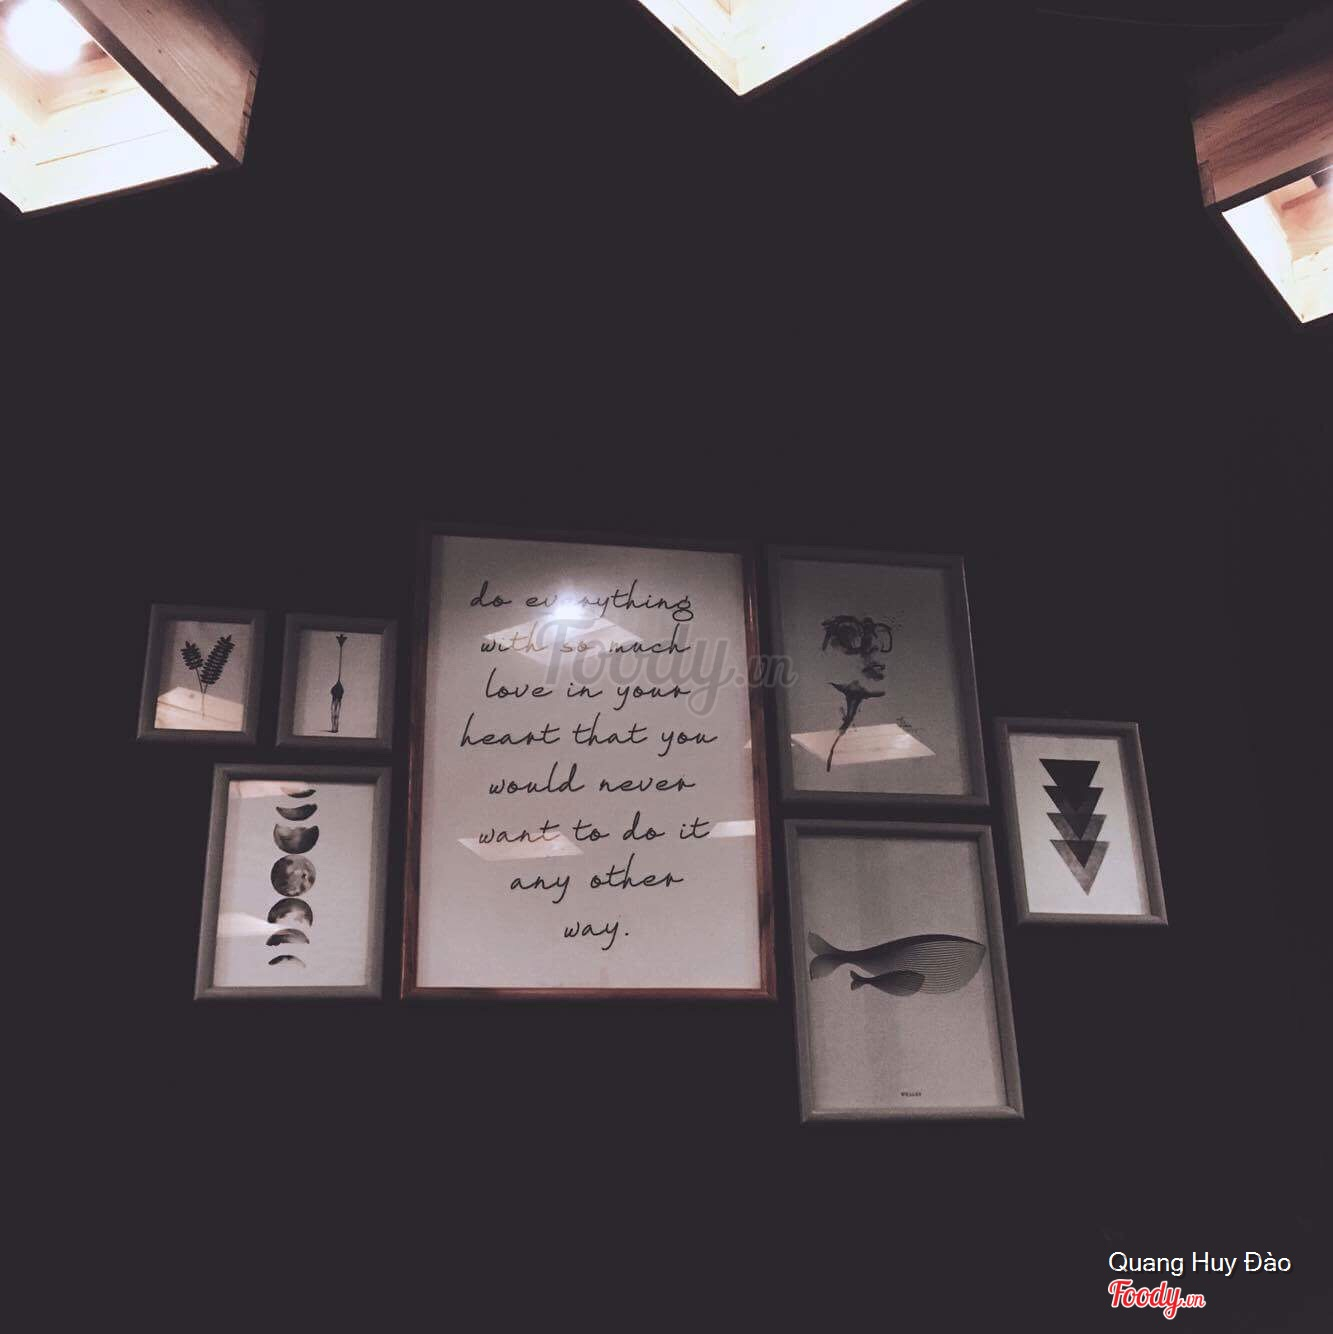 do everything
with so much
love in your
heart that you
would never
want to do it
any other
way.
Foody.vn
WHALES
Quang Huy Đào
Foody.vn